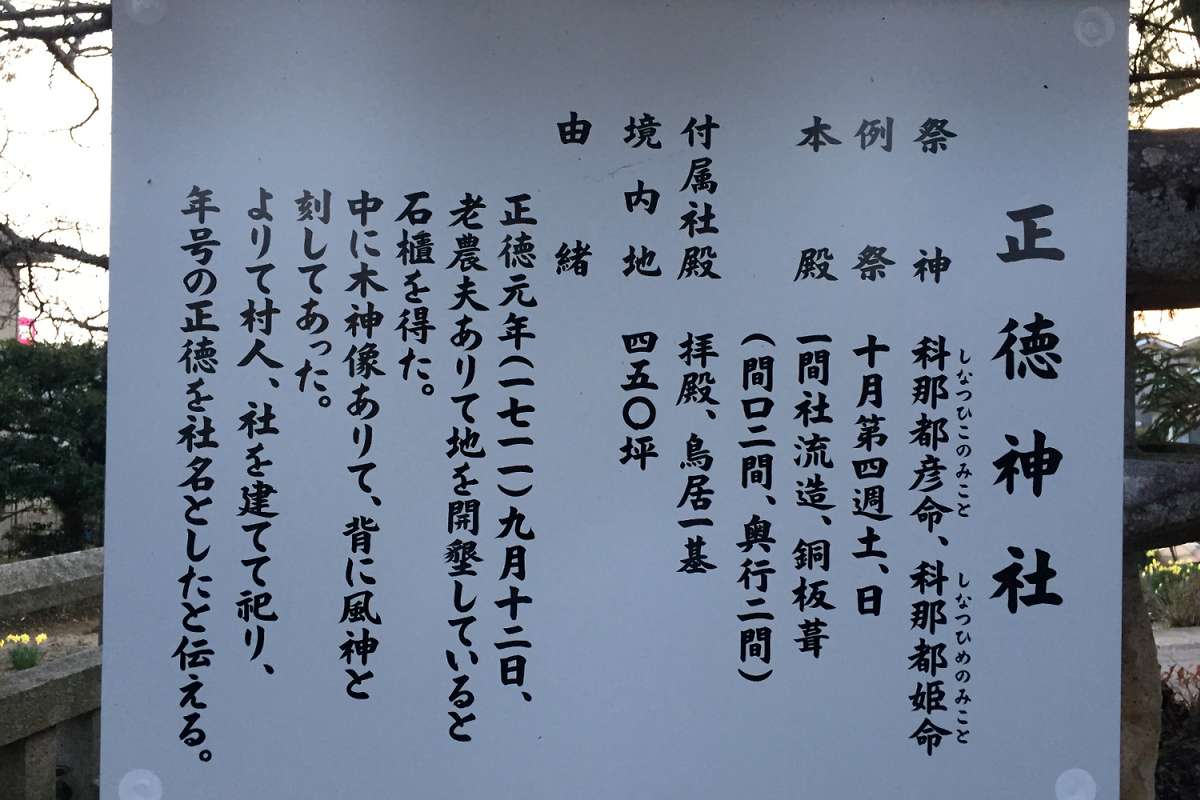 正徳神社
祭神 科那都彦命、科那都姫命
しなつひこのみこと しなつひめのみこと
例祭 十月第四週土、日
本殿 一間社流造、銅板葺
(間口二間、奥行二間)
付属社殿 拝殿、鳥居一基
境内地 四五〇坪
由緒
正徳元年(一七一一)九月十二日、
老農夫ありて地を開墾していると
石櫃を得た。
中に木神像ありて、背に風神と
刻してあった。
よりて村人、社を建てて祀り、
年号の正徳を社名としたと伝える。